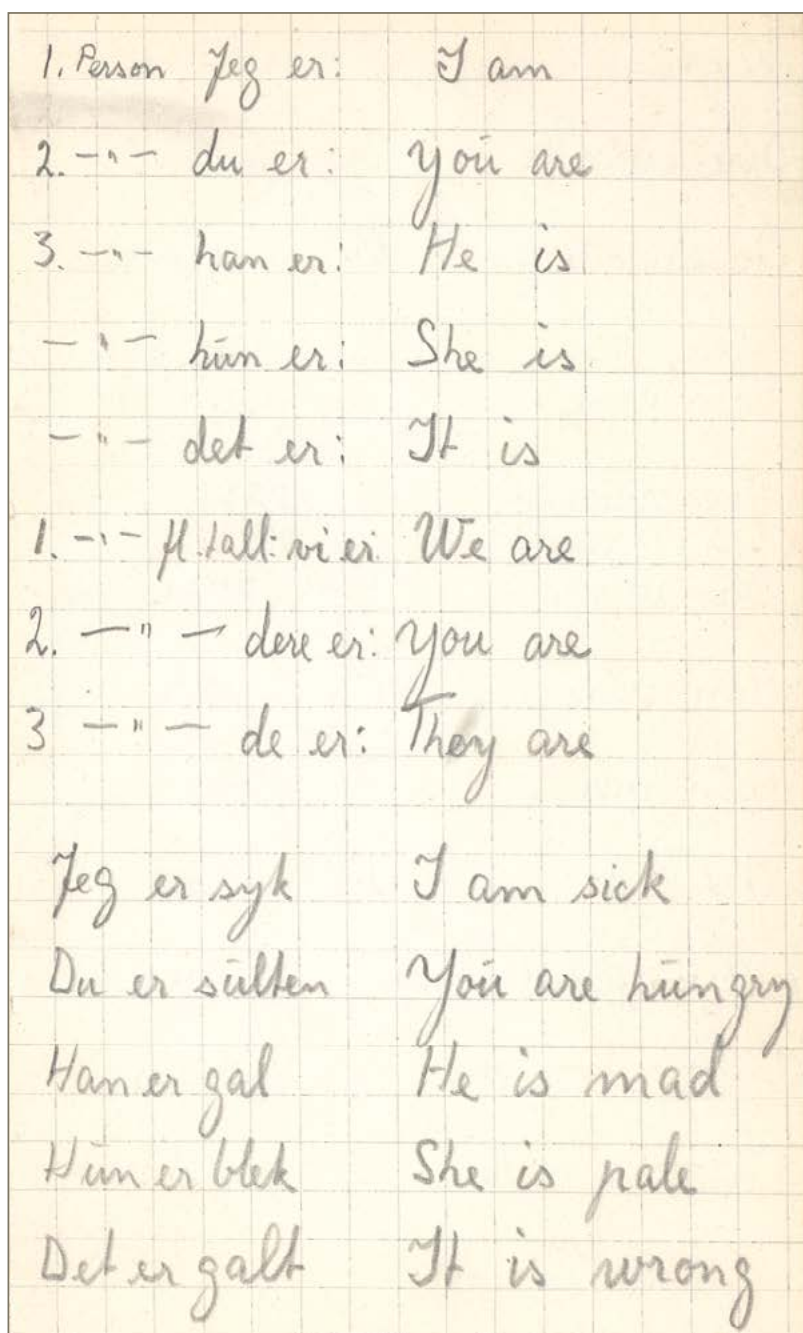 1. Person Jeg er: I am
2. -"- du er: you are
3. -"- han er: He is
-"- hun er: She is
-"- det er: It is
1. -"- fl.tall: vi er: We are
2. -"- dere er: you are
3 -"- de er: They are
Jeg er syk I am sick
Du er sulten You are hungry
Han er gal He is mad
Hun er blek She is pale
Det er galt It is wrong